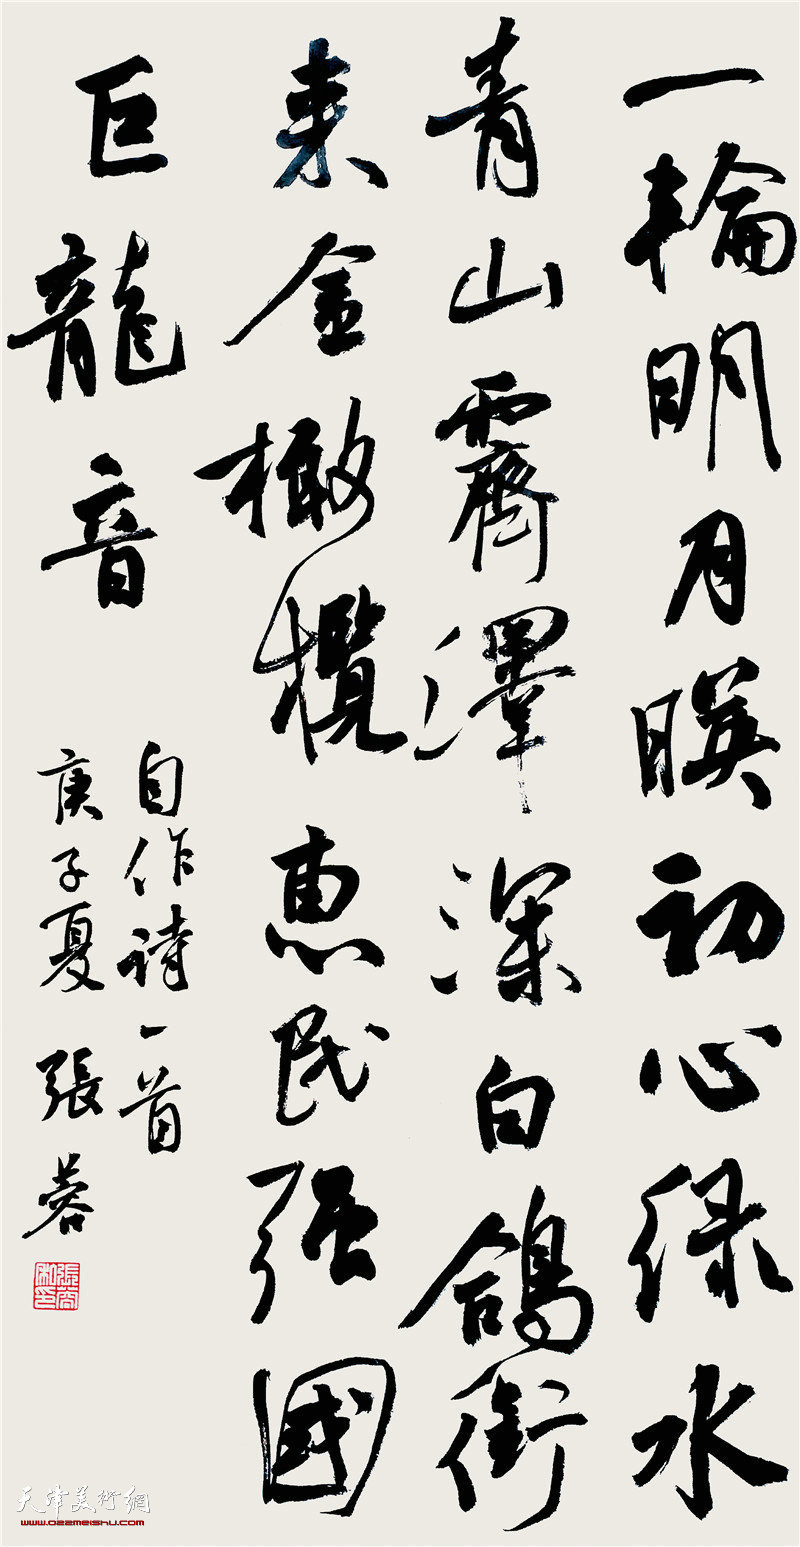 一輪明月暎初心绿水
青山霽澤深白鴿銜
来金橄欖惠民强國
巨龍音
自作詩一首
庚子夏 張蓉
天津美術網
www.022meishu.com